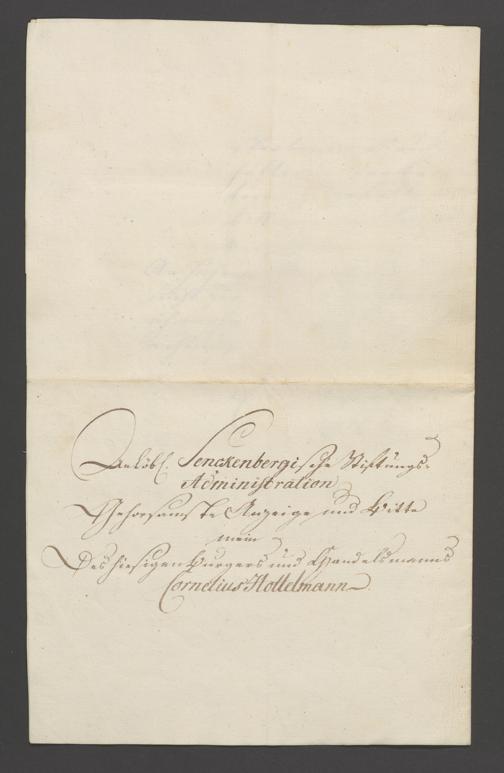 An Löbl. Senckenbergische Stiftungs-
Administration
Gehorsamste Anzeige und Bitte
mein
Des hiesigen Burgers und Handelsmanns
Cornelius Hollelmann